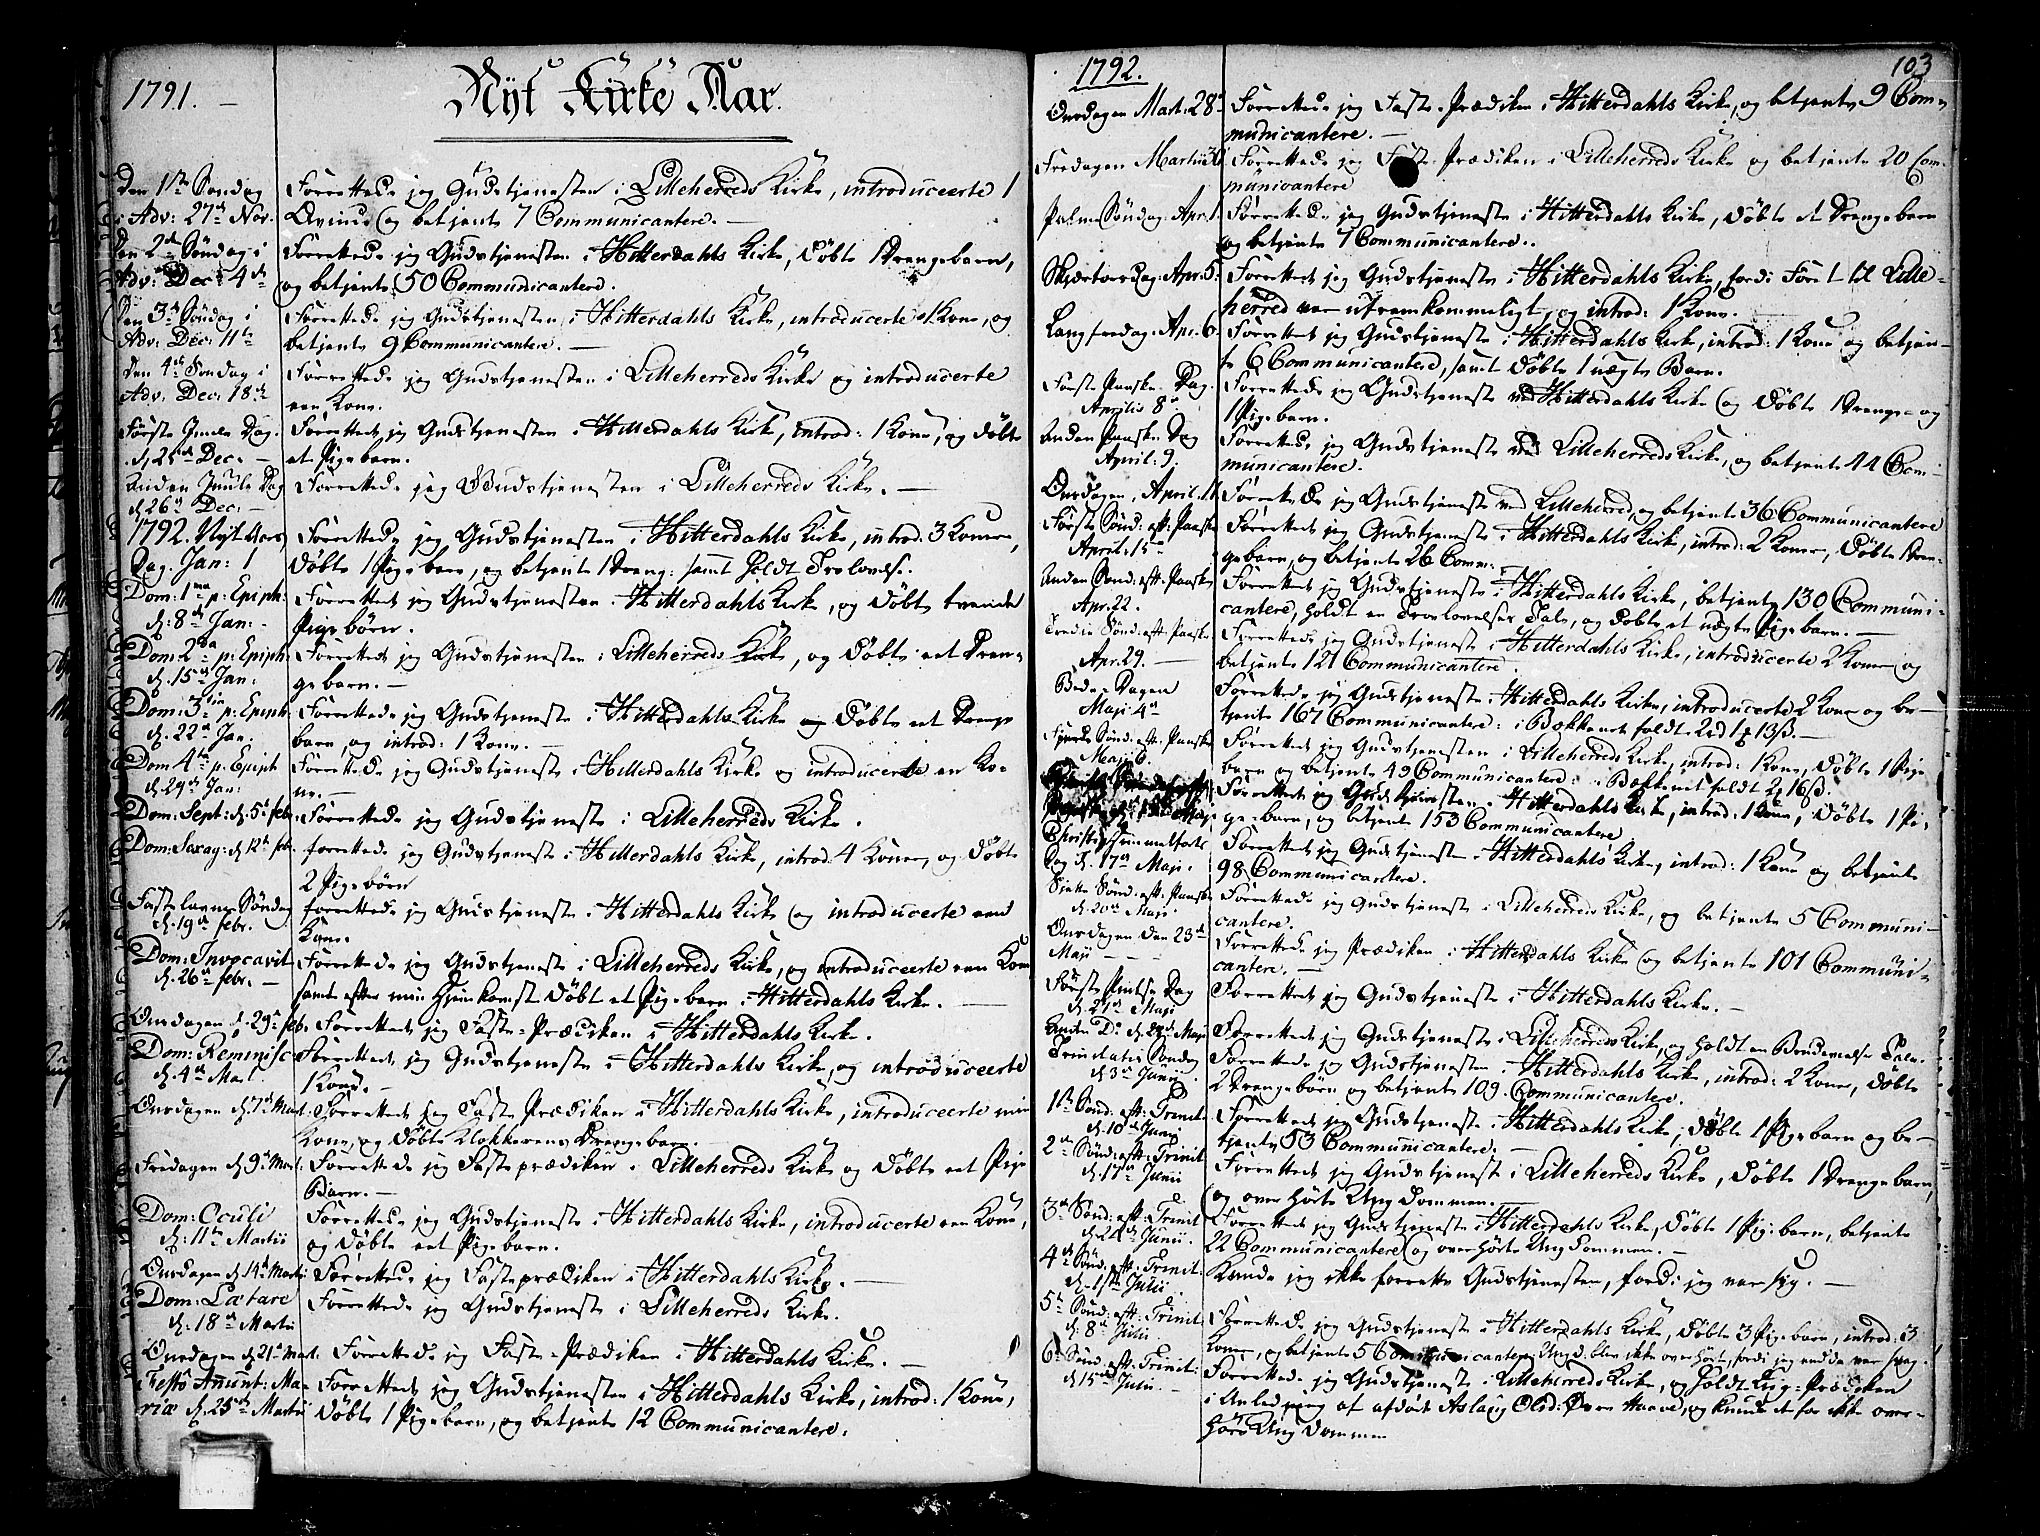 1791. — Nyt Kirke Aar.
Den 1ste Søndag Forrettede jeg Gudstjenesten i Lilleherreds Kirke, introducerte 1
i Adv: 27de Nov. Qvinde og betjente 7 Communicantere. —
Den 2den Søndag i Forrettede jeg Gudstjenesten i Hitterdahls Kirke, døbte 1 Drengebarn,
Adv: Dec: 4de og betjente 50 Communicantere.
Den 3die Søndag i Forrettede jeg Gudstjenesten i Hitterdahls Kirke, introducerte 1 Kone, og
Adv: Dec: 11te betjente 9 Communicantere. —
Den 4de Søndag i Forrettede jeg Gudstjenesten i Lilleherreds Kirke og introducerte
Adv. Dec: 18de een Kone.
Første Juule Dag. Forrettede jeg Gudstjenesten i Hitterdahls Kirke, introd: 1 Kone, og døbte
d. 25de Dec: — et Pigebarn.
Anden Juule Dag Forrettede jeg Gudstjenesten i Lilleherreds Kirke. —
d. 26de Dec: —
1792. Nyt Aars Forrettede jeg Gudstjenesten i Hitterdahls Kirke, introd. 3 Koner,
Dag. Jan: 1 døbte 1 Pigebarn, og betjente 1 Dreng: samt holdt Trolovelse.
Dom: 1ma p: Epiph: Forrettede jeg Gudstjenesten i Hitterdahls Kirke, og døbte tvende
d: 8de Jan: — Pigebörn.
Dom: 2da p: Epiph: Forrettede jeg Gudstjenesten i Lilleherreds Kirke, og døbte eet Dren-
d. 15de Jan: gebarn. —
Dom: 3tia p: Epiph: Forrettede jeg Gudstjeneste i Hitterdahls Kirke og døbte eet Drenge
d. 22de Jan. barn, og introd: 1 Kone. —
Dom 4ta p: Epiph Forrettede jeg Gudstjeneste i Hitterdahls Kirke og introducerte en Ko-
d. 29de Jan: ne. —
Dom: Sept: d. 5te febr. Forrettede jeg Gudstjeneste i Lilleherreds Kirke.
Dom: Sexag: d. 12te febr. forrettede jeg Gudstjeneste i Hitterdahls Kirke, introd. 4 Koner, og døbte
2 Pigebörn
Fastelavns Søndag forrettede jeg Gudstjeneste i Hitterdahls Kirke og introducerte eend
d. 19de febr. Kone.
Dom: Invocavit Forrettede jeg Gudstjeneste i Lilleherreds Kirke, og introducerte een Kone
d. 26de febr. — samt efter min Hjemkomst døbt et Pigebarn i Hitterdahls Kirke. —
Onsdagen d. 29de feb. Forrettede jeg Faste-Prædiken i Hitterdahls Kirke.
Dom: Reminisc Forrettede jeg Gudstjeneste i Hitterdahls Kirke, og introducerte
d. 4de Mart. 1 Kone. —
Onsdagen d. 7de Mart: Forrettede jeg Faste Prædiken i Hitterdahls Kirke, introducerte min
Kone, og døbte Klokkerens Drengebarn.
Fredagen d. 9de Mart: Forrettede jeg Fasteprædiken i Lilleherreds Kirke og døbte eet Pige
Barn. —
Dom: Oculi Forrettede jeg Gudstjeneste i Hitterdahls Kirke, introducerte een Kone,
d. 11te Martii og døbte eet Pigebarn.
Onsdagen d. 14de Martii Forrettede jeg Fasteprædiken i Hitterdahls Kirke. —
Dom: Lætare Forrettede jeg Gudstjeneste i Lilleherreds Kirke.
d. 18de Martii
Onsdagen d. 21de Mart. Forrettede jeg Faste-Prædiken i Hitterdahls Kirke. —
Festo Anunt: Ma- Forrettede jeg Gudstjenesten i Hitterdahls Kirke, introd: 1 Kone,
riæ d. 25de Martii døbte 1 Pigebarn, og betjente 12 Communicantere.
1792. 103
Onsdagen Mart: 28de Forrettede jeg Faste-Prædiken i Hitterdahls Kirke, og betjente 9 Com-
municantere. —
Fredagen Martii 30 Forrettede jeg Faste-Prædiken i Lilleherreds Kirke og betjente 20 Com-
municantere
Palme Søndag: Apr. 1 Forrettede jeg Gudstjeneste i Hitterdahls Kirke, døbte et Drengebarn
og betjente 7 Communicantere.
Skjertorsdag: Apr: 5. Forrettet jeg Gudstjeneste i Hitterdahls Kirke, fordi Føret til Lille-
herred var ufremkommeligt, og introd: 1 Kone. —
Langfredag: Apr: 6. Forrettet jeg Gudstjeneste i Hitterdahls Kirke, introd: 1 Kone og betjen-
te 6 Communicantere, samt døbte 1 uægte Barn.
Første Paaske-Dag. Forrettede jeg Gudstjeneste ved Hitterdahls Kirke og døbte 1 Drenge- og
Aprilis 8de 1 Pigebarn.
Anden Paaske Dag Forrettede jeg Gudstjeneste ved Lilleherreds Kirke, og betjente 44 Com-
April: 9. municantere.
Onsdagen, April. 11 Forrettede jeg Gudstjeneste ved Lilleherred, og betjente 36 Communicantere
Første Sønd: eft: Paaske Forrettet jeg Gudstjeneste i Hitterdahls Kirke, introd: 2 Koner, døbte 1 Dren-
April: 15de gebarn, og betjente 26 Comm:
Anden Sond: eft: Paaske Forrettede jeg Gudstjeneste i Hitterdahls Kirke, betjente 130 Communi-
Apr. 22. cantere, holdt en Trolovelses Tale, og døbte et uægte Pigebarn. —
Tredie Sønd: eft: Paaske Forrettede jeg Gudstjeneste i Hitterdahls Kirke, introducerte 2 Koner og
Apr. 29. — betjente 121 Communicantere.
Bede-Dagen Forrettede jeg Gudstjeneste i Hitterdahls Kirke, introducerte 2 Koner og be-
Maji 4de tjente 167 Communicantere: i Bækkenet faldt
Fjerde Sønd: eft: Paaske Forrettet jeg Gudstjenesten i Lilleherreds Kirke, introd: 1 Kone, døbte 1 Pige
Maji 6. barn og betjente 49 Communicantere: i Bækkenet faldt
Forrettet jeg Gudstjenesten i Hitterdahls Kirke, introd: 1 Kone, døbte 1 Pi-
gebarn, og betjente 153 Communicantere.
Christi Himmelfarts Forrettet jeg Gudstjeneste i Hitterdahls Kirke, introd: 1 Kone og betjente
Dag d. 17de Maji. 98 Communicantere.
Sjette Sönd: eft: Paaske Forrettede jeg Gudstjeneste i Lilleherreds Kirke, og betjente 5 Communi-
d. 20de Maji cantere.
Onsdagen den 23de Forrettede jeg Prædiken i Hitterdahls Kirke og betjente 101 Communi-
Maji — — cantere. —
Første Pintse Dag Forrettet jeg Gudstjeneste i Hitterdahls Kirke. —
d. 27de Maji
Anden Do d. 28de Maji Forrettede jeg Gudstjeneste i Lilleherreds Kirke, og holdt en Tale.
Trinitatis Søndag Forrettede jeg Gudstjeneste i Hitterdahls Kirke, introd: 2 Koner, døbte
d. 3die Junii 2 Drengebörn og betjente 109 Communicantere.
1ste Sönd: eft: Trinit: Forrettet jeg Gudstjeneste i Hitterdahls Kirke, døbte 1 Pigebarn og be-
d. 10de Junii tjente 53 Communicantere. —
2den Sönd: eft: Trinit: Forrettet jeg Gudstjenest i Lilleherreds Kirke, døbte 1 Drengebarn,
d. 17de Junii og over hörte Ungdommen. —
3die Sönd: eft: Trinit Forrettet jeg Gudstjeneste i Hitterdahls Kirke, døbte 1 Pigebarn, betjente
d. 24de Junii. 22 Communicantere og over hörte Ungdommen. —
4de Sönd: eft: Trinit: Kunde jeg ikke forrette Gudstjenesten, fordi jeg var syg. —
d. 1ste Julii
5te Sönd: eft: Trinit: Forrettede jeg Gudstjeneste i Hitterdahls Kirke, døbte 3 Pigebarn, introd: 3
d: 8de Julii Koner, og betjente 5 Communicantere: Ungd. blev ikke overhört, fordi jeg endda var svag.
6te Sönd: eft: Trinit: Forrettede jeg Gudstjenesten i Lilleherreds Kirke, og holdt Liig-Prædiken
d. 15de Julii — i Anledning af afdøde Aslaug Olsd: Øvre og kunde derfor ikke over-
höre Ungdommen